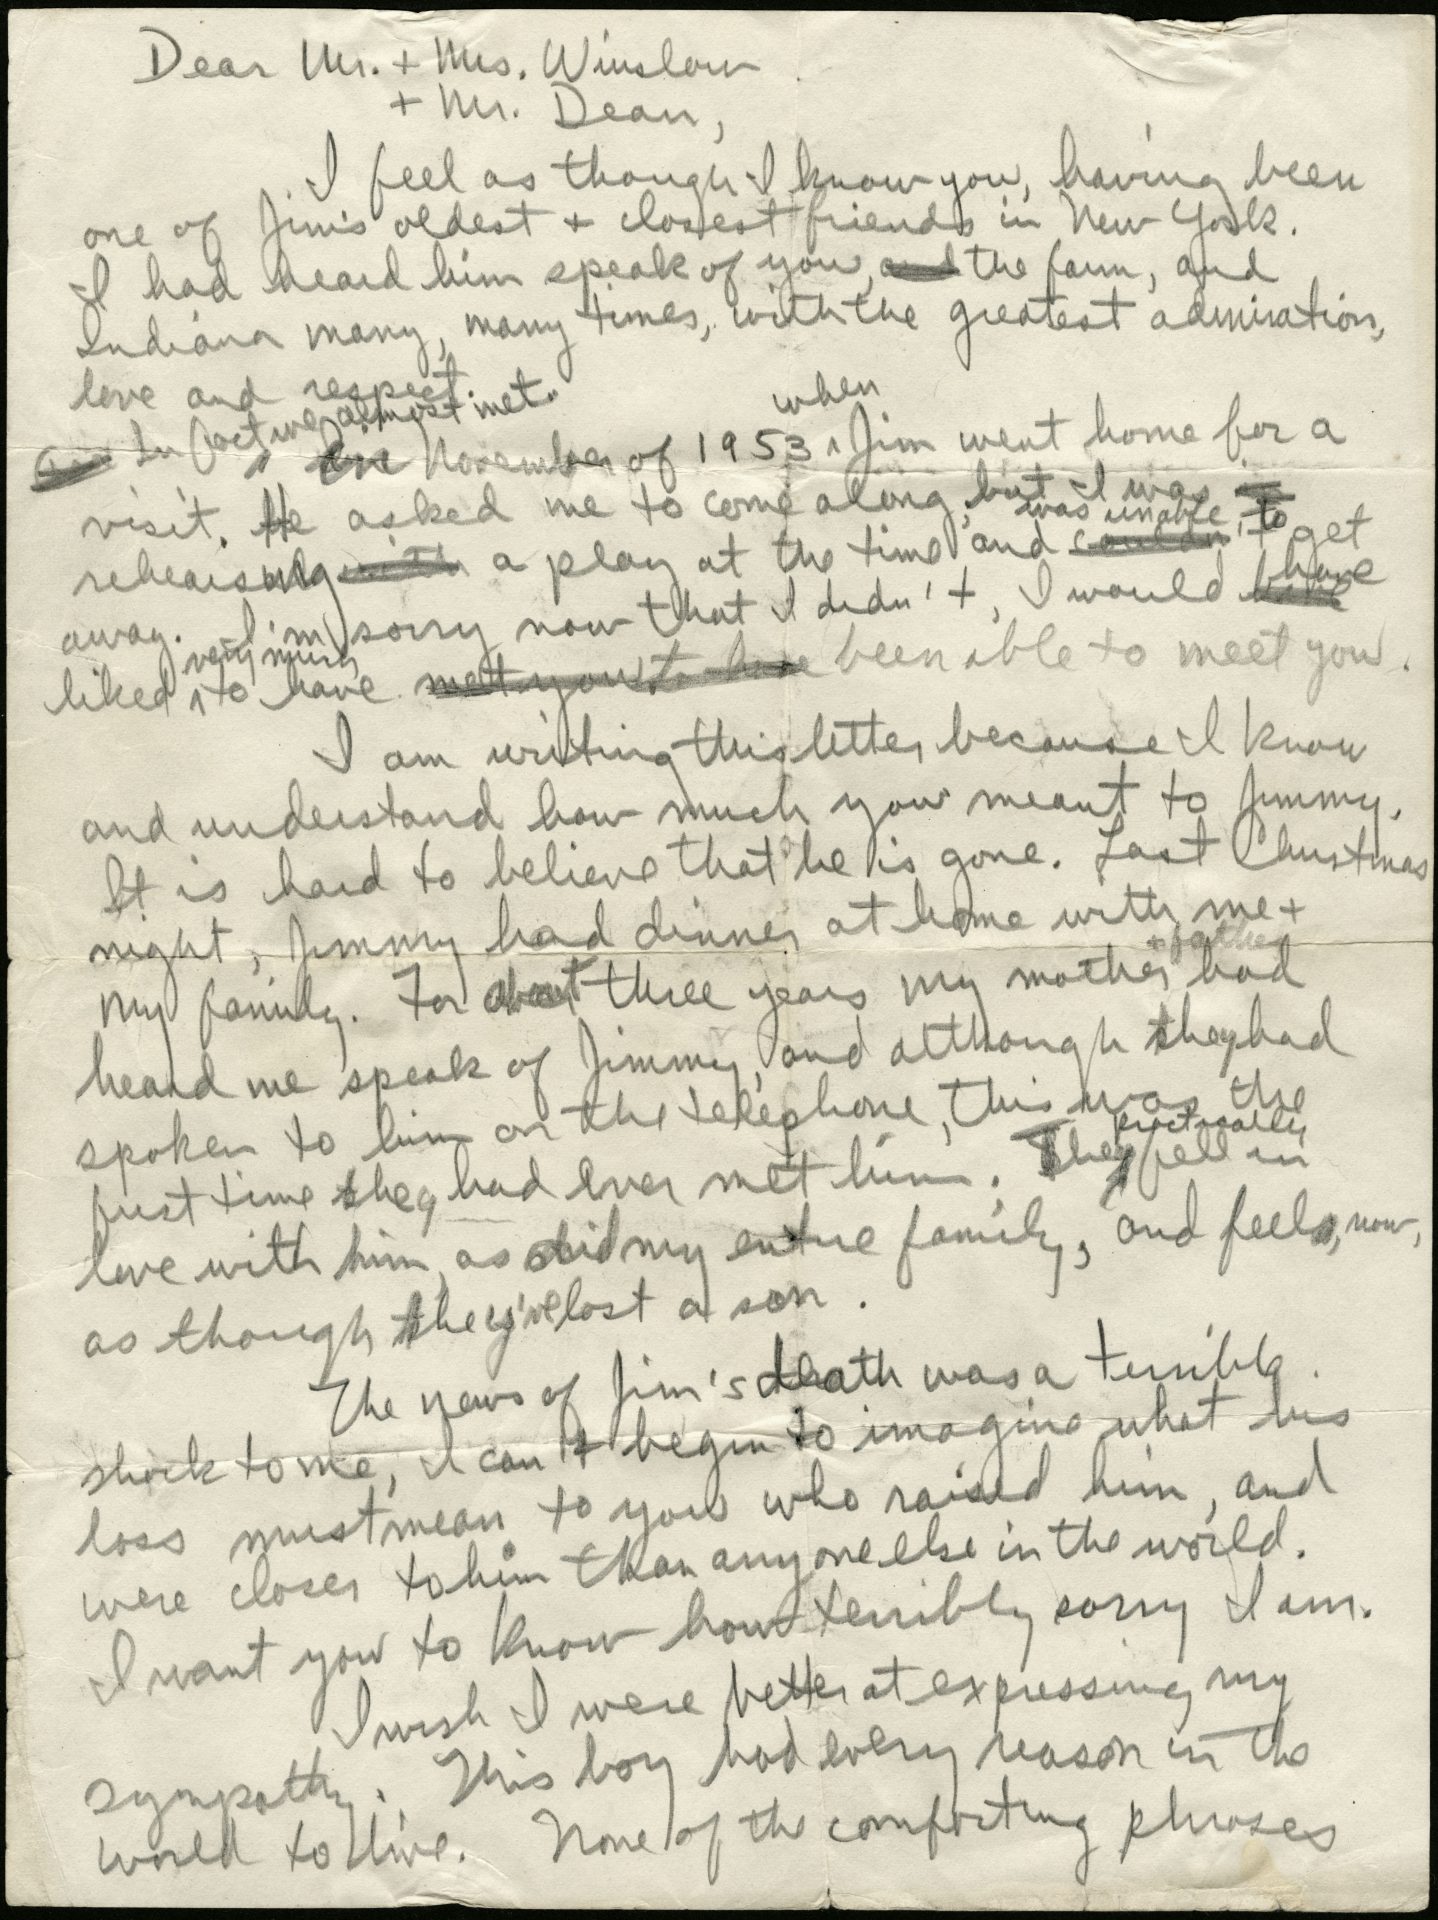 Dear Mr. + Mrs. Winslow
+ Mr. Dean,
I feel as though I know you, having been
one of Jim's oldest + closest friends in New York.
I had heard him speak of you, the farm, and
Indiana many, many times, with the greatest admiration,
love and respect.
In fact we almost met. In November of 1953 when Jim went home for a
visit. He asked me to come along, but I was
rehearsing a play at the time and was unable to get
away. I'm sorry now that I didn't, I would have
liked very much to have been able to meet you.
I am writing this letter because I know
and understand how much you meant to Jimmy.
It is hard to believe that he is gone. Last Christmas
night, Jimmy had dinner at home with me +
my family. For about three years my mother + father had
heard me speak of Jimmy, and although they had
spoken to him on the telephone, this was the
first time they had ever met him. They practically fell in
love with him, as did my entire family, and feel, now,
as though they've lost a son.
The news of Jim's death was a terrible
shock to me, I can't begin to imagine what his
loss must mean to you who raised him, and
were closer to him than anyone else in the world.
I want you to know how terribly sorry I am.
I wish I were better at expressing my
sympathy. This boy had every reason in the
world to live. None of the comforting phrases